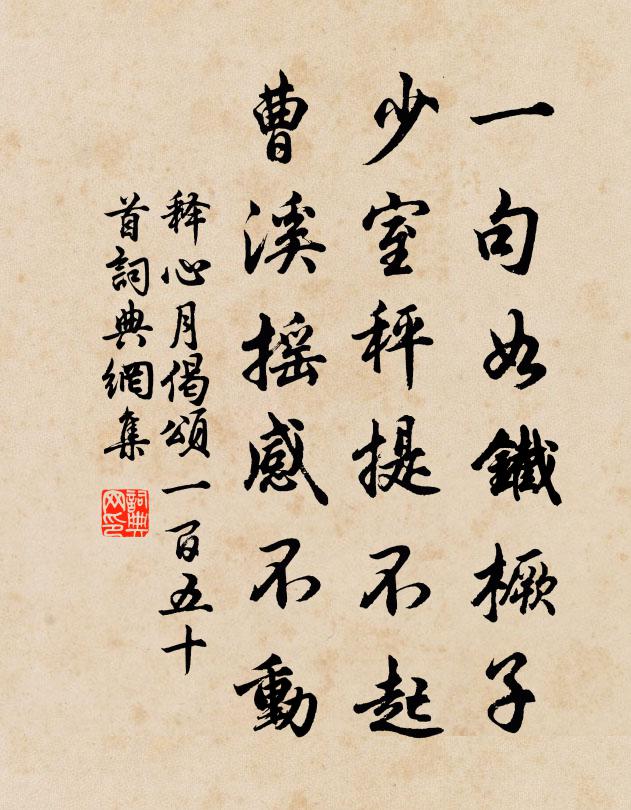 一句如鐵橛子
少室秤提不起
曹溪摇感不動
释心月偈頌一百五十
首詞典網集
詞典网印